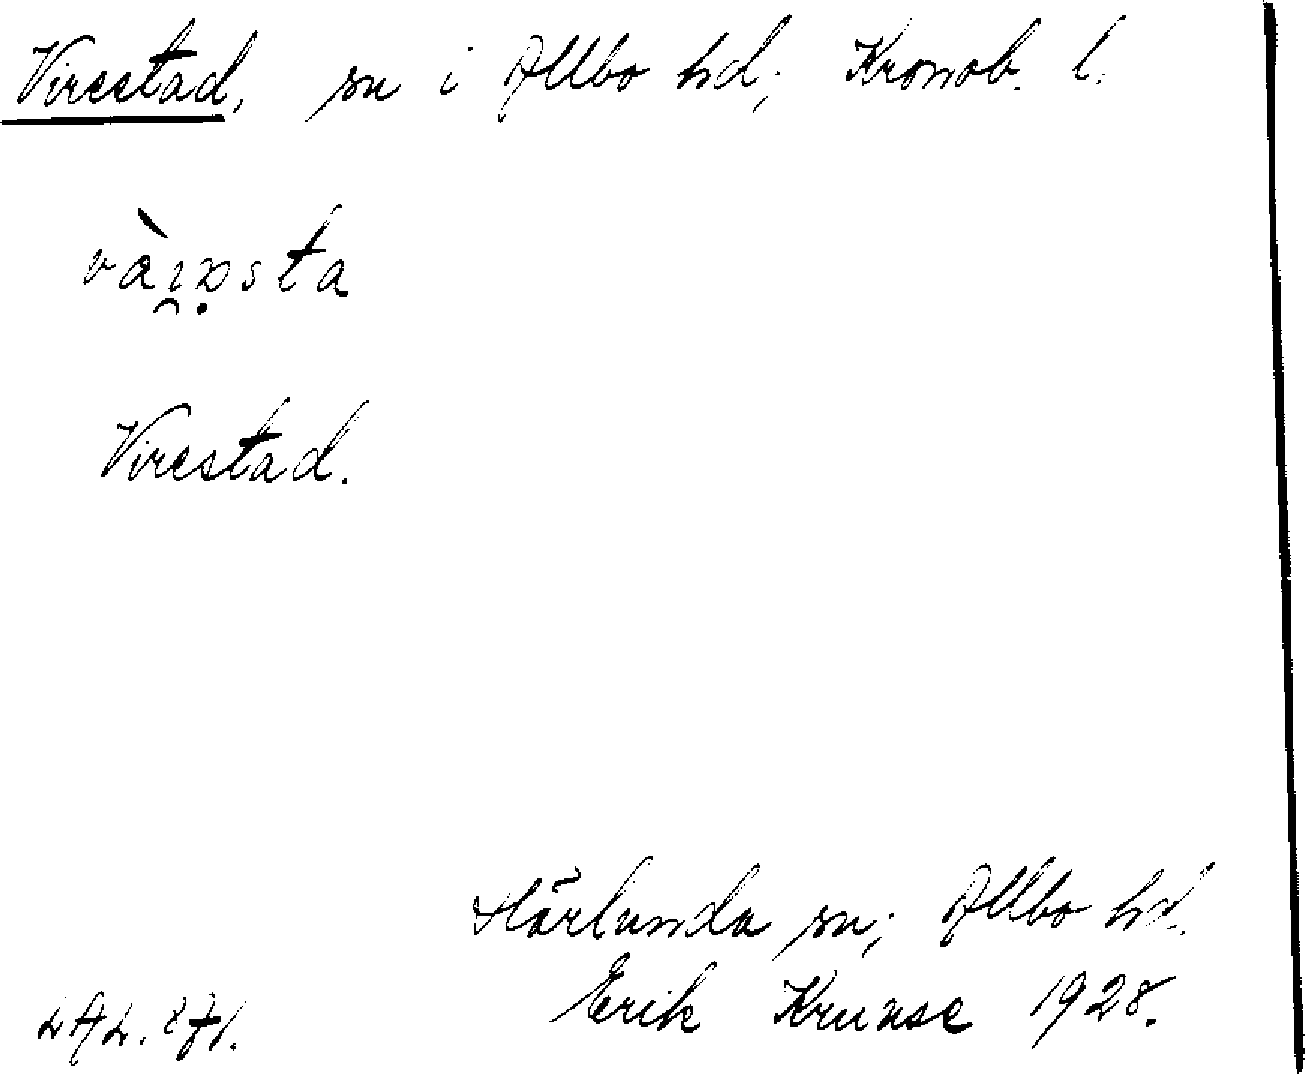 Virestad, sn i Allbo hd; Kronob. l.
Virestad.
Härlunda sn; Allbo hd.
Erik Kruuse 1928.